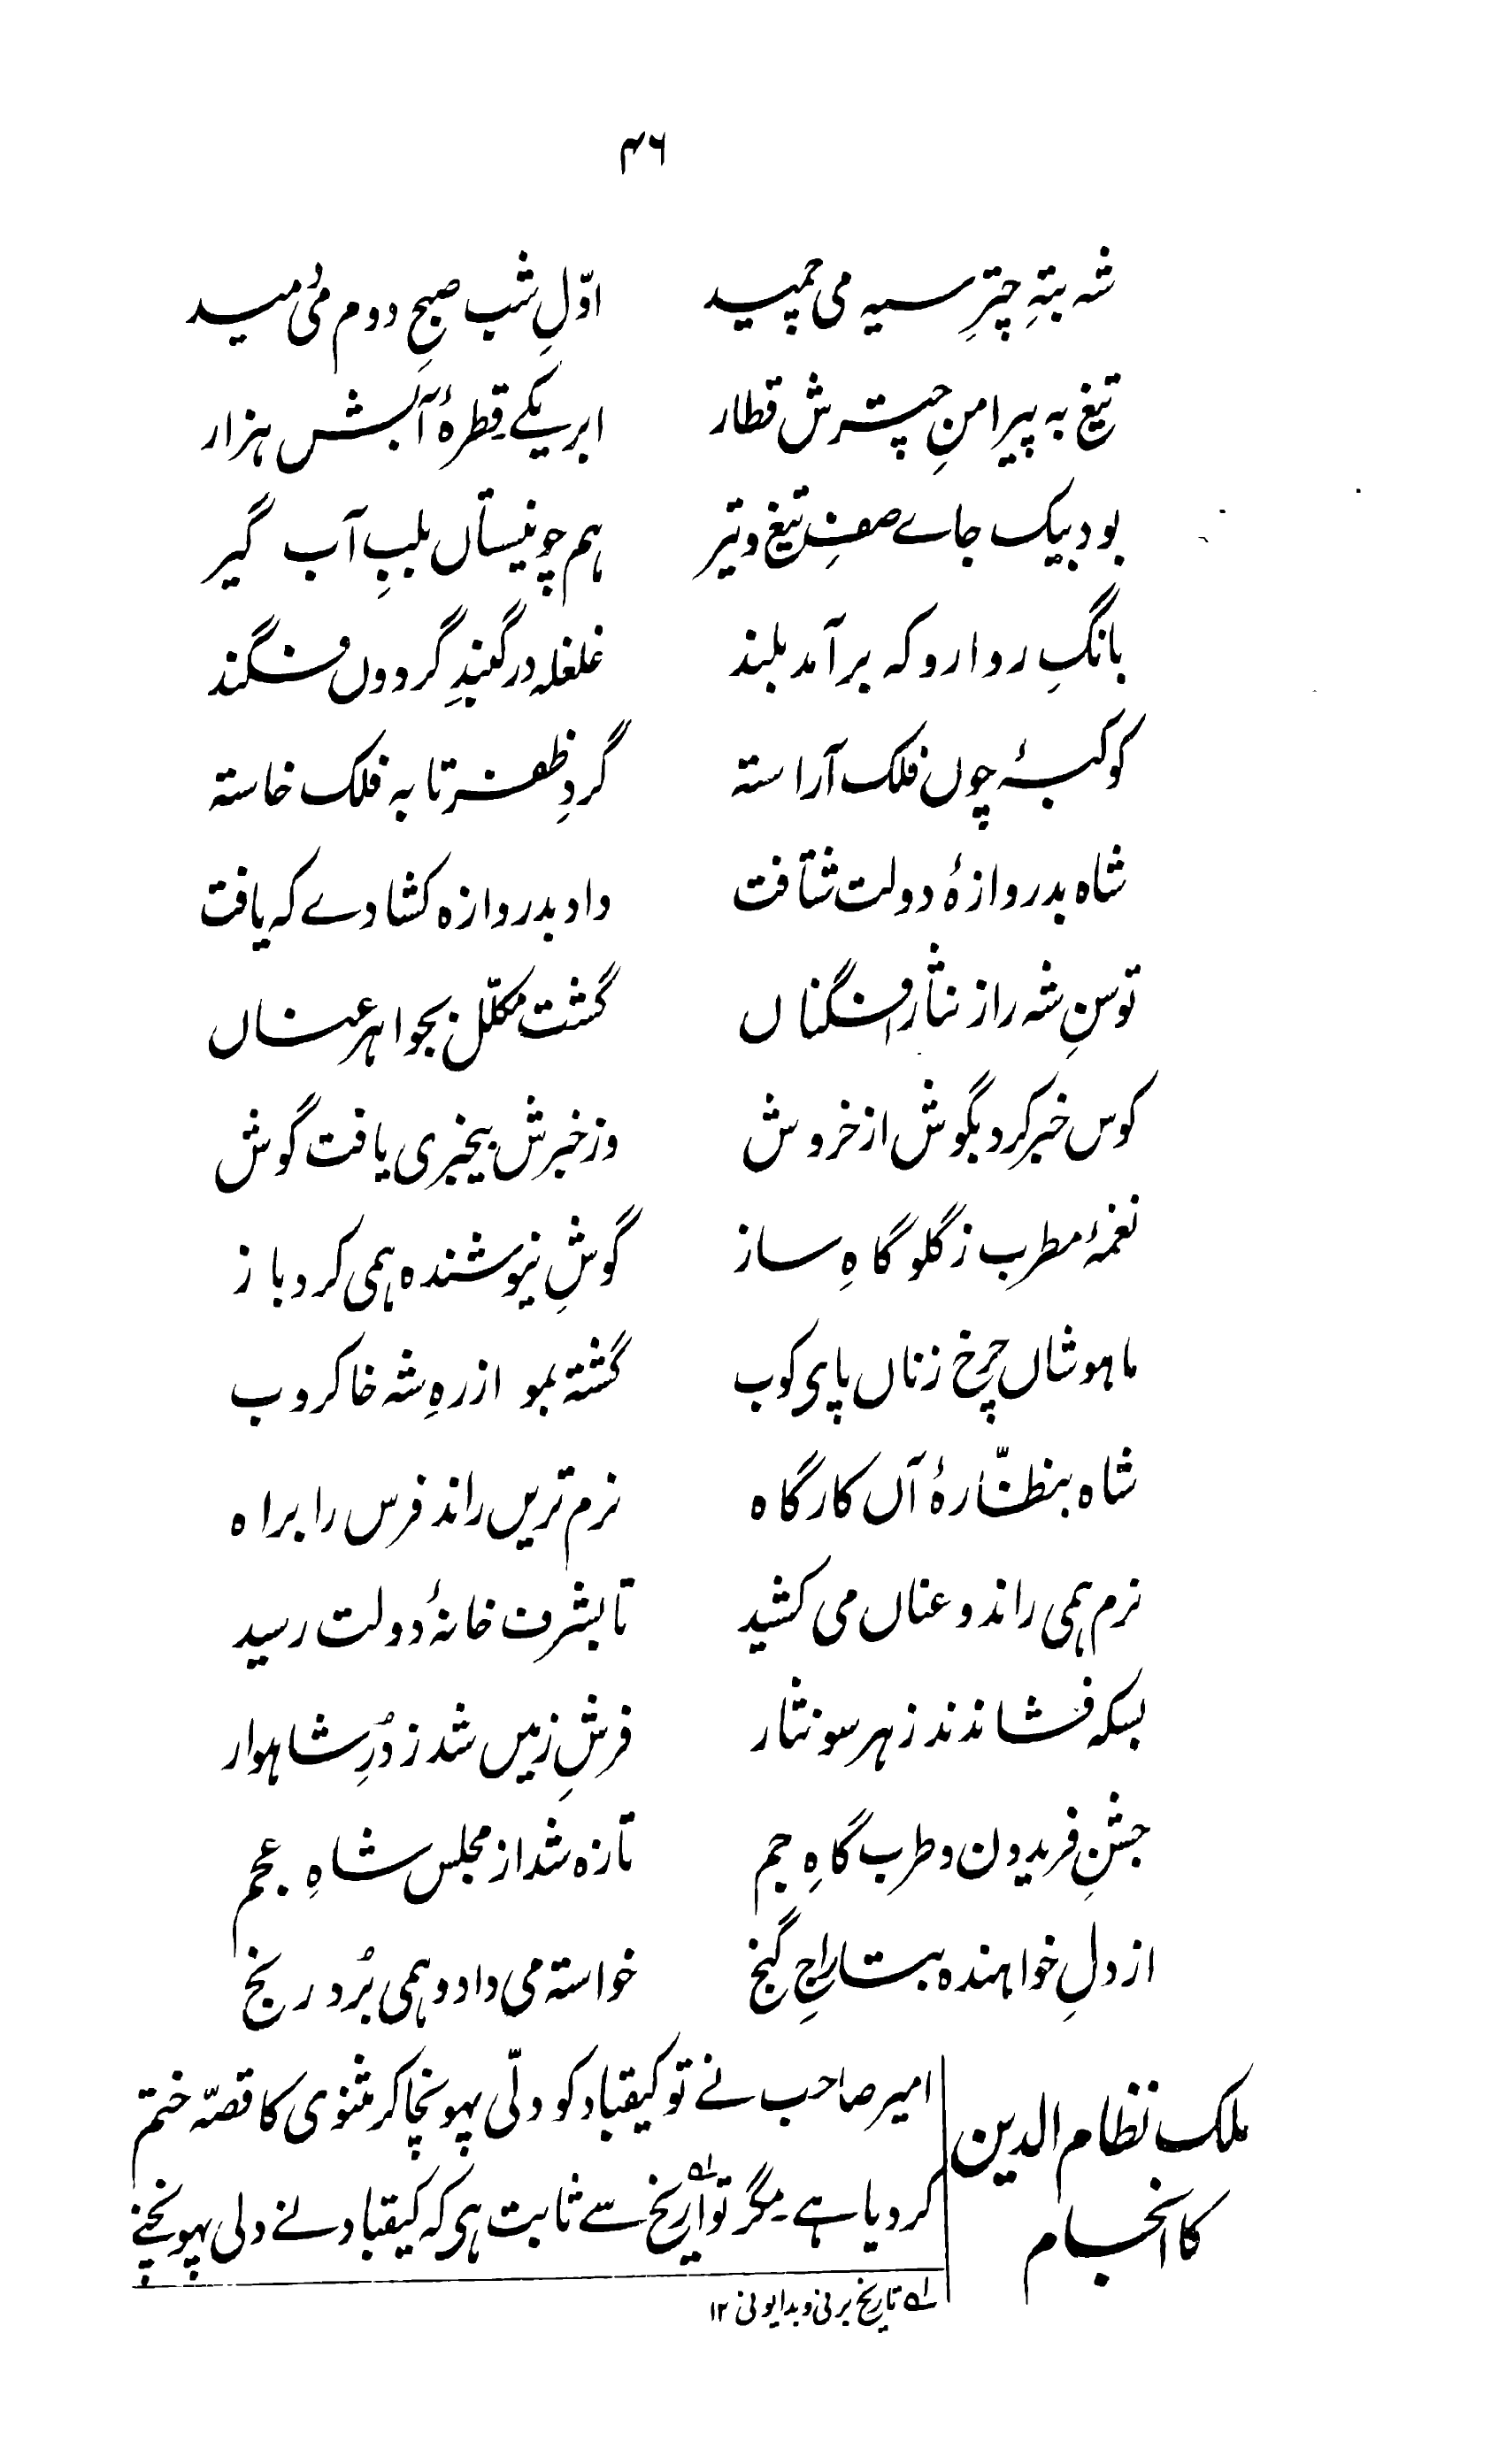 ۴۶
شہ بتہِ چترِ سیہ می چمید اوّلِ شب صبحِ دوم می دمید
تیغ بہ پیرامنِ چترش قطار ابر یکے قطرۂ آبش ہزار
بود بیک جاے صفِ تیغ و تیر ہم چو نیستاں بلبِ آب گیر
بانگِ روارو کہ برآمد بلند غلغلہ در گنبدِ گردوں فگند
کوکبۂ چوں فلک آراستہ گردِ ظفر تا بہ فلک خاستہ
شاہ بدروازۂ دولت شتافت داد بدروازہ کشادے کہ یافت
توسنِ شہ را ز نثار افگناں گشت مکلّل بجواہر عناں
کوس خبر کرد بگوش از خروش وز خبرش بیخبری یافت گوش
نغمۂ مطرب ز گلوگاہِ ساز گوشِ نیوشندہ ہمی کرد باز
ماہوشاں چرخ زناں پای کوب گشتہ بمو از رہِ شہ خاکروب
شاہ بنظّارۂ آں کارگاہ نرم تریں راند فرس را براہ
نرم ہمی راند و عناں می کشید تا بشرف خانۂ دولت رسید
بسکہ فشاندند ز ہر سو نثار فرشِ زمیں شد ز دُرِ شاہوار
جشنِ فریدون و طرب گاہِ جم تازہ شد از مجلس شاہِ عجم
از دلِ خواہندہ بتاراجِ گنج خواستہ می داد و ہمی بُرد رنج
ملک نظام الدین
کا انجام
امیر صاحب نے تو کیقباد کو دلّی پہونچا کر مثنوی کا قصّہ ختم
کر دیا ہے۔ مگر تواریخ لہ سے ثابت ہی کہ کیقباد نے دلی پہونچنے
لہ تاریخ برنی و بدایونی ۱۲